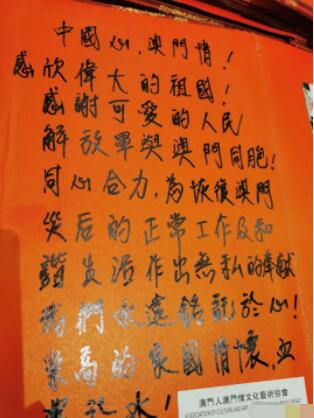 中國心,澳門情!
感欣偉大的祖國!
感謝可愛的人民
解放軍與澳門同胞!
同心合力,為恢復澳門
災后的正常工作及和
諧生活作出無私的奉献
我們永遠銘記於心!
崇高的家國情懷,血
水!
澳門人澳門情文化藝術協會
ASSOCIATION OF CULTURE AND ART